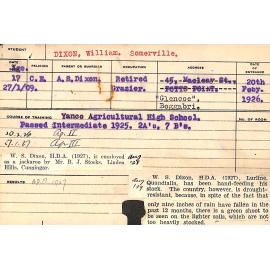 STUDENT
DIXON, William. Somerville.
Age. RELIGION PARENT OR GUARDIAN OCCUPATION ADDRESS
17 C.E. A.S.Dixon. Retired 45, Macleay St., 20th
27/1/09. Grazier. POTTS POINT. Feby.
"Glencoe", 1926.
Boggabri.
COURSE OF TRAINING Yanco Agricultural High School.
Passed Intermediate 1925. 2A's, 7 B's.
Ag. II
Ag. III
W. S. Dixon, H.D.A. (1927), is employed
as a jackaroo by Mr. B. J. Stocks, Linden
Hills, Cunningar.
RESULTS
W. S. Dixon, H.D.A. (1927), Lurline,
Quandialla, has been hand-feeding his
stock. The country, however, is drought-
resistant, because, in spite of the fact that
only nine inches of rain have fallen in the
past 12 months, there is a green shoot to
be seen on the lighter soils, which are not
too heavily stocked.